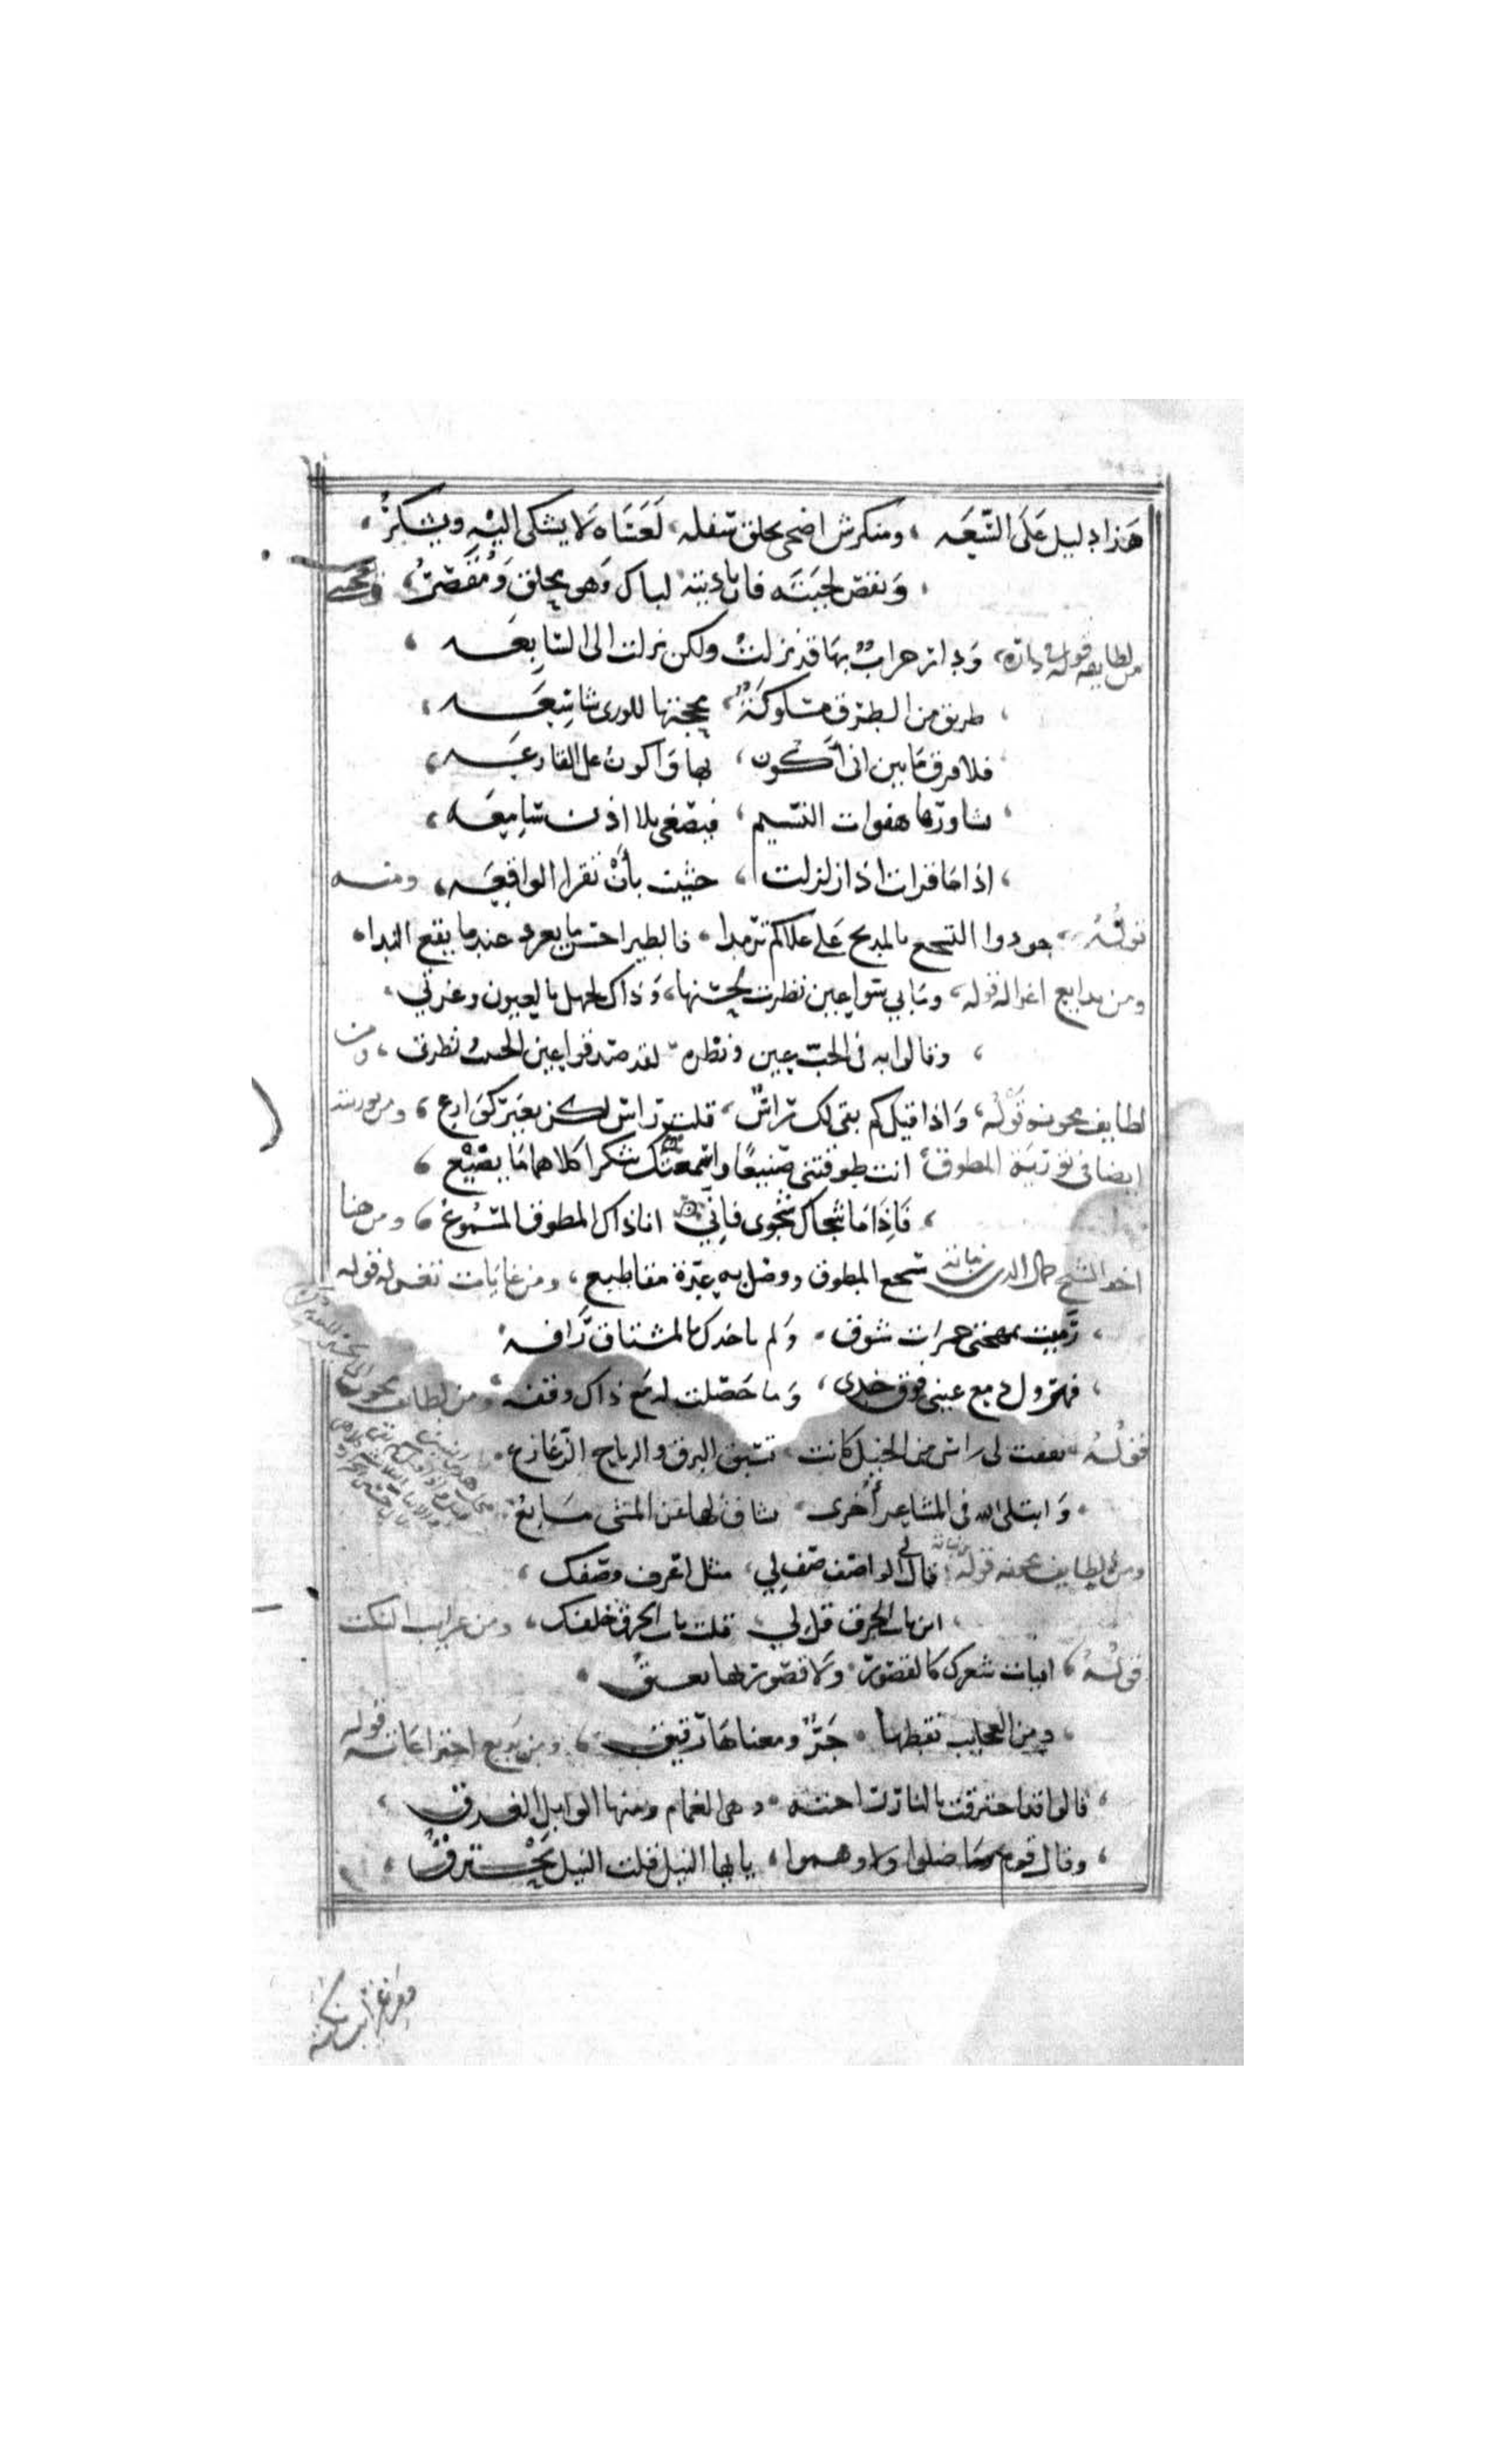 هذا دليل على السعه ، ومنكرش اضحى يحلق سفله ، لعناه لا يشكى اليه ويشكر ،
، ونفض لحيته فان ناديته لباك وهو يحلق ومقصر ،
من لطايفه قوله في داره ، ودار خراب بها قد نزلت ولكن نزلت الى السابعه ،
، طريق من الطرق مسلوكة ، محجتها للورى شاسعه ،
فلا فرق ما بين اني أكون ، بها واكون على القارعه ،
، تساورها هفوات النسيم ، فتصغى بلا اذن سامعه ،
، اذا ما قرات اذا زلزلت ، خشيت بأن تقرا الواقعه ، ومنه
قوله ، جودوا لتسجع بالمديح على علاكم سرمدا ، فالطير احسن ما يغرد عند ما يقع الندا ،
ومن بدايع اغزاله قوله ، وما بي سوا عين نظرت لحسنها ، وذاك لجهلي بالعيون وغرتي ،
، وقالوا به في الحب عين ونظره ، لقد صدقوا عين الحبيب ونظرتي ، ومن
لطايف مجونه قوله ، واذا قيل كم بقى لك راس ، قلت راس لكن بغير كوارع ،
ايضا في تورية المطوق ، انت طوقتني صنيعا واسمعتك شكرا كلاهما ما يضيع ،
، فاذا ما شجاك شجوى فاني ، انا ذاك المطوق المسموع ، ومن هنا
اخذ الشيخ جمال الدين بن نباته سجع المطوق ووصل به عدة مقاطيع ، ومن غايات قوله
، رميت بمهجتي جمرات شوق ، ولم تاخذك بالمشتاق رافه
، فهرول دمع عيني فوق خدي ، وما حصلت له مع ذاك وقفه ، ومن لطايف مجونه
قوله ، نفقت لي راس من الخيل كانت ، تسبق البرق والرياح الزعازع ،
، وابتلى الله في المشاعر أخرى ،
ومن لطايف قوله ، قال لي الواصف صف لي ، مثل اعرف وصفك ،
، اين باب الخرق قل لي ، قلت باب الخرق خلفك ، ومن غرايب النكت
قوله ، ابيات شعرك كالقصور ، ولا قصور بها يعيق ،
، ومن العجايب لفظها ، حر ومعناها رقيق ، ومن بديع اختراعاته قوله
، قالوا قد احترقت بالنار راحته ، وهي الغمام ومنها الوابل الغدق ،
، وقال قوم وما ضلوا ولا وهموا ، بانها النيل قلت النيل يحترق ،